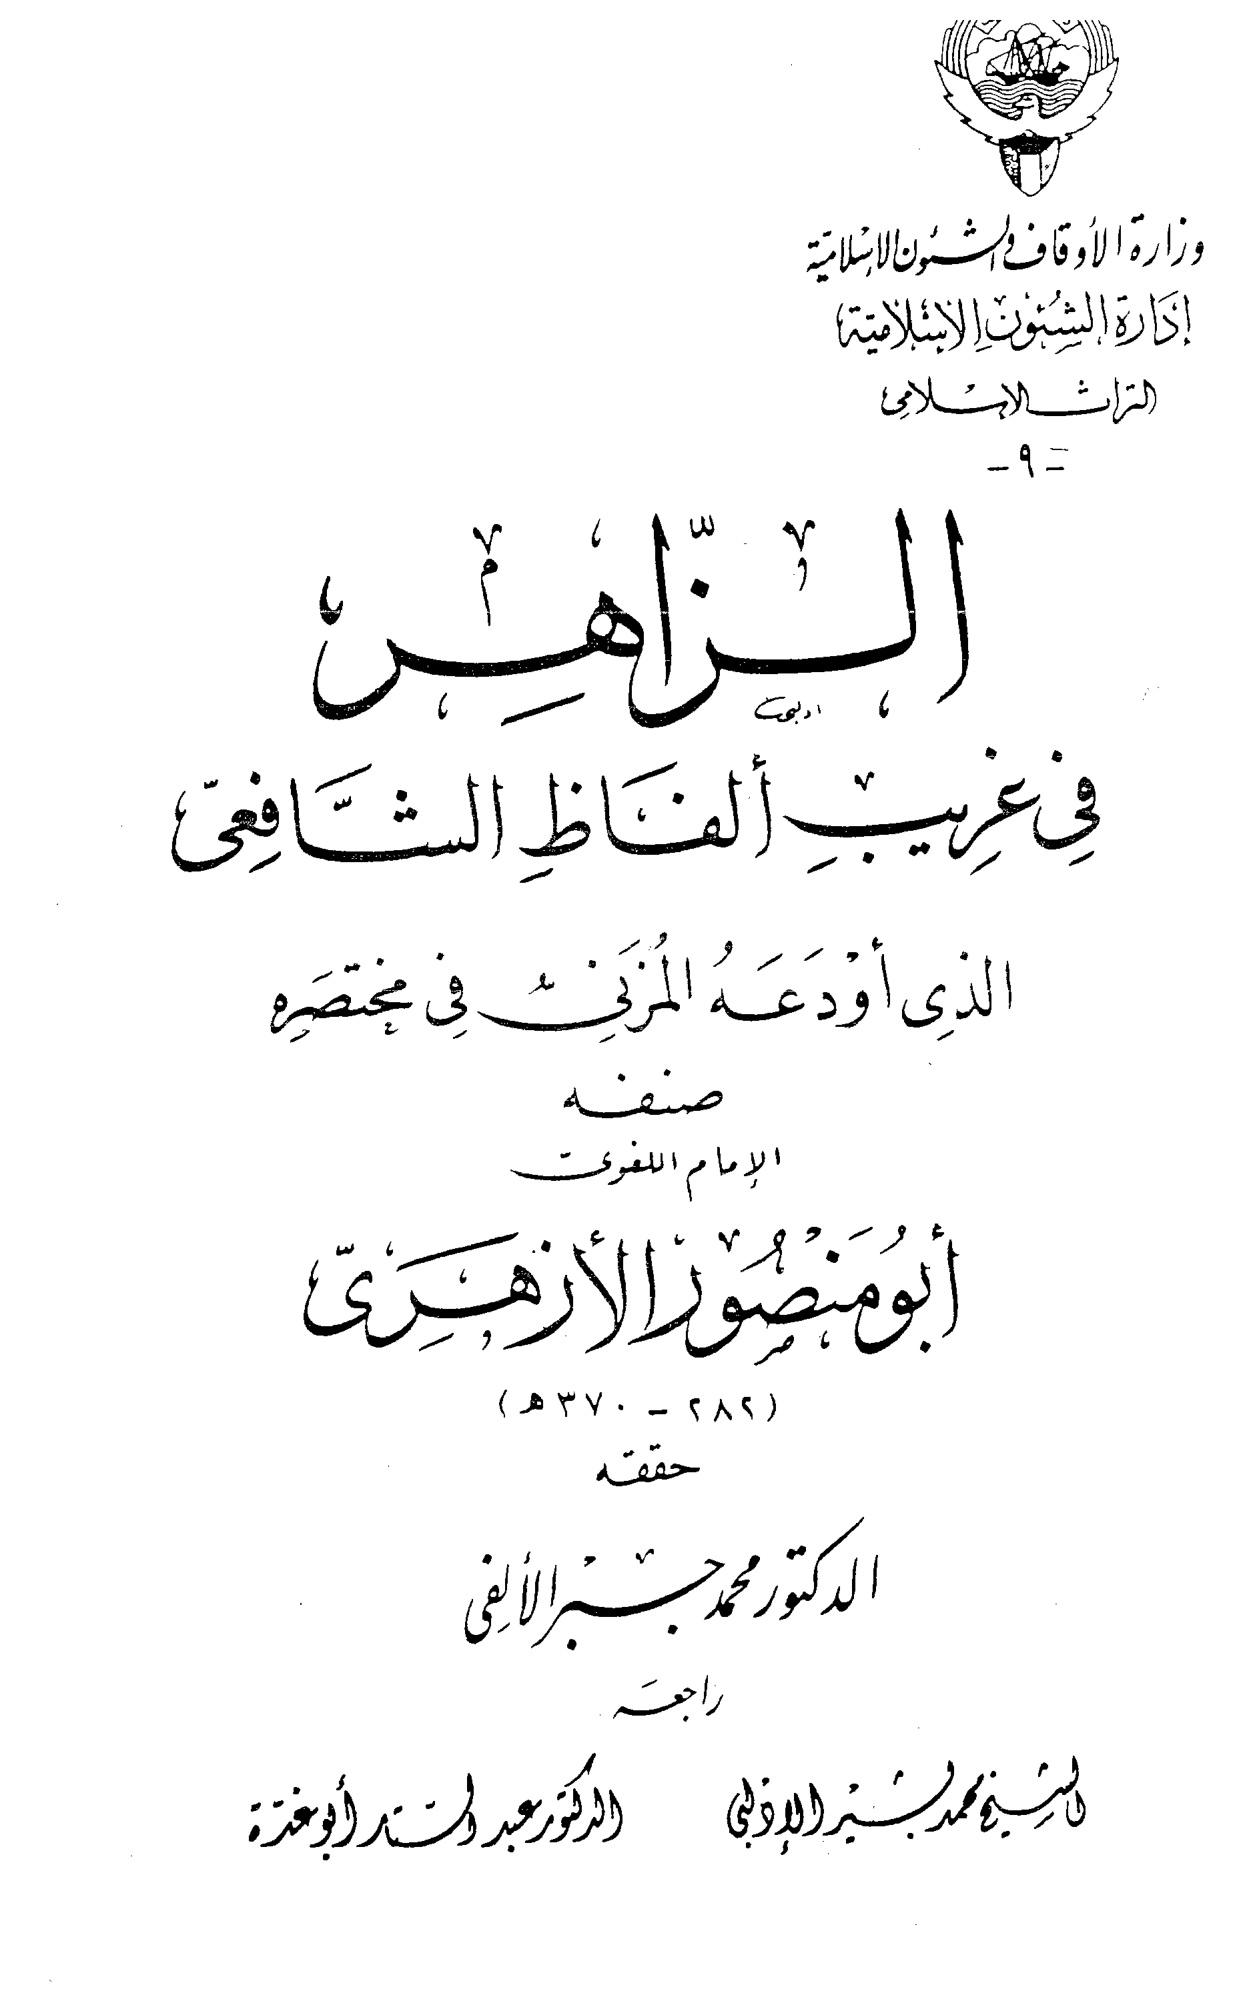 وزارة الأوقاف والشئون الإسلامية
إدارة الشئون الإسلامية
التراث الإسلامي
- ٩ -
الزّاهِر
في غريبِ ألفاظِ الشّافِعيّ
الذي أوْدَعَهُ المُزَنيّ في مختصَرِه
صنفه
الإمام اللغوى
أبُو مَنْصُور الأزهَرِىّ
(٢٨٢ - ٣٧٠ هـ)
حققه
الدكتور محمد جبر الألفي
راجعه
الشيخ محمد بشير الإدلبي الدكتور عبد الستار أبو غدّة